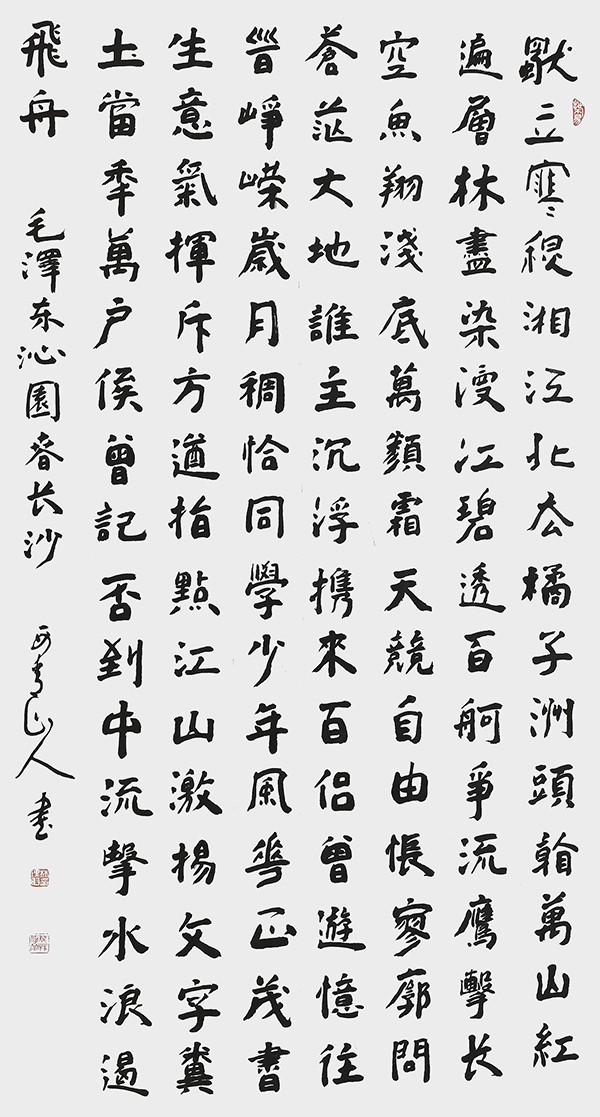 獨立寒秋湘江北去橘子洲頭看萬山紅
遍層林盡染漫江碧透百舸爭流鷹擊長
空魚翔淺底萬類霜天競自由悵寥廓問
蒼茫大地誰主沉浮携來百侶曾遊憶往
昔崢嶸歲月稠恰同學少年風華正茂書
生意氣揮斥方遒指點江山激揚文字糞
土當年萬户侯曾記否到中流擊水浪遏
飛舟 毛澤东沁園春长沙 山人書